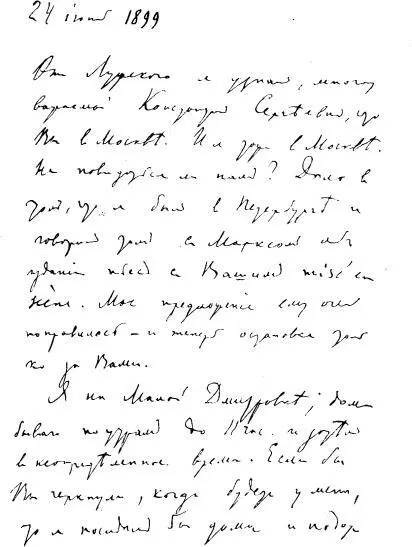 24 июня 1899
От Лурского я узнал, много
уважаемый Константин Сергѣевич, что
Вы в Москвѣ. И я тоже в Москвѣ.
Не повидаться ли нам? Дело в
том, что я был в Петербургѣ и
говорил там с Марксом об
издании пьес с Вашими mise en
scène. Мое предложение ему очень
понравилось – и теперь остановка тол
ко за Вами.
Я на Малой Дмитровке; дома
бываю по утрам до 11 час. и потом
в неопредѣленное время. Если бы
Вы черкнули, когда будете у меня,
то я посидел бы дома и подож